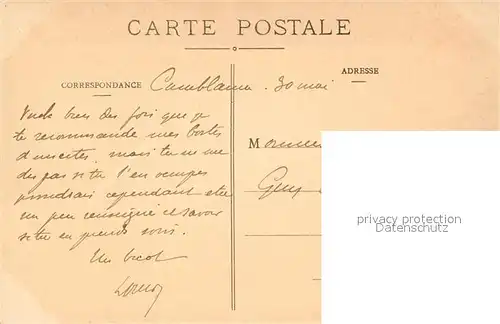 CARTE POSTALE
CORRESPONDANCE
ADRESSE
Casablanca . 30 mai
bien des fois que je
te recommande mes boites
d'insectes, mais tu ne me
dis pas si tu t'en occupes
voudrais cependant etre
un peu renseigné et savoir
si tu en prends soin.
Un bicot
M
Guy
privacy protection
Datenschutz